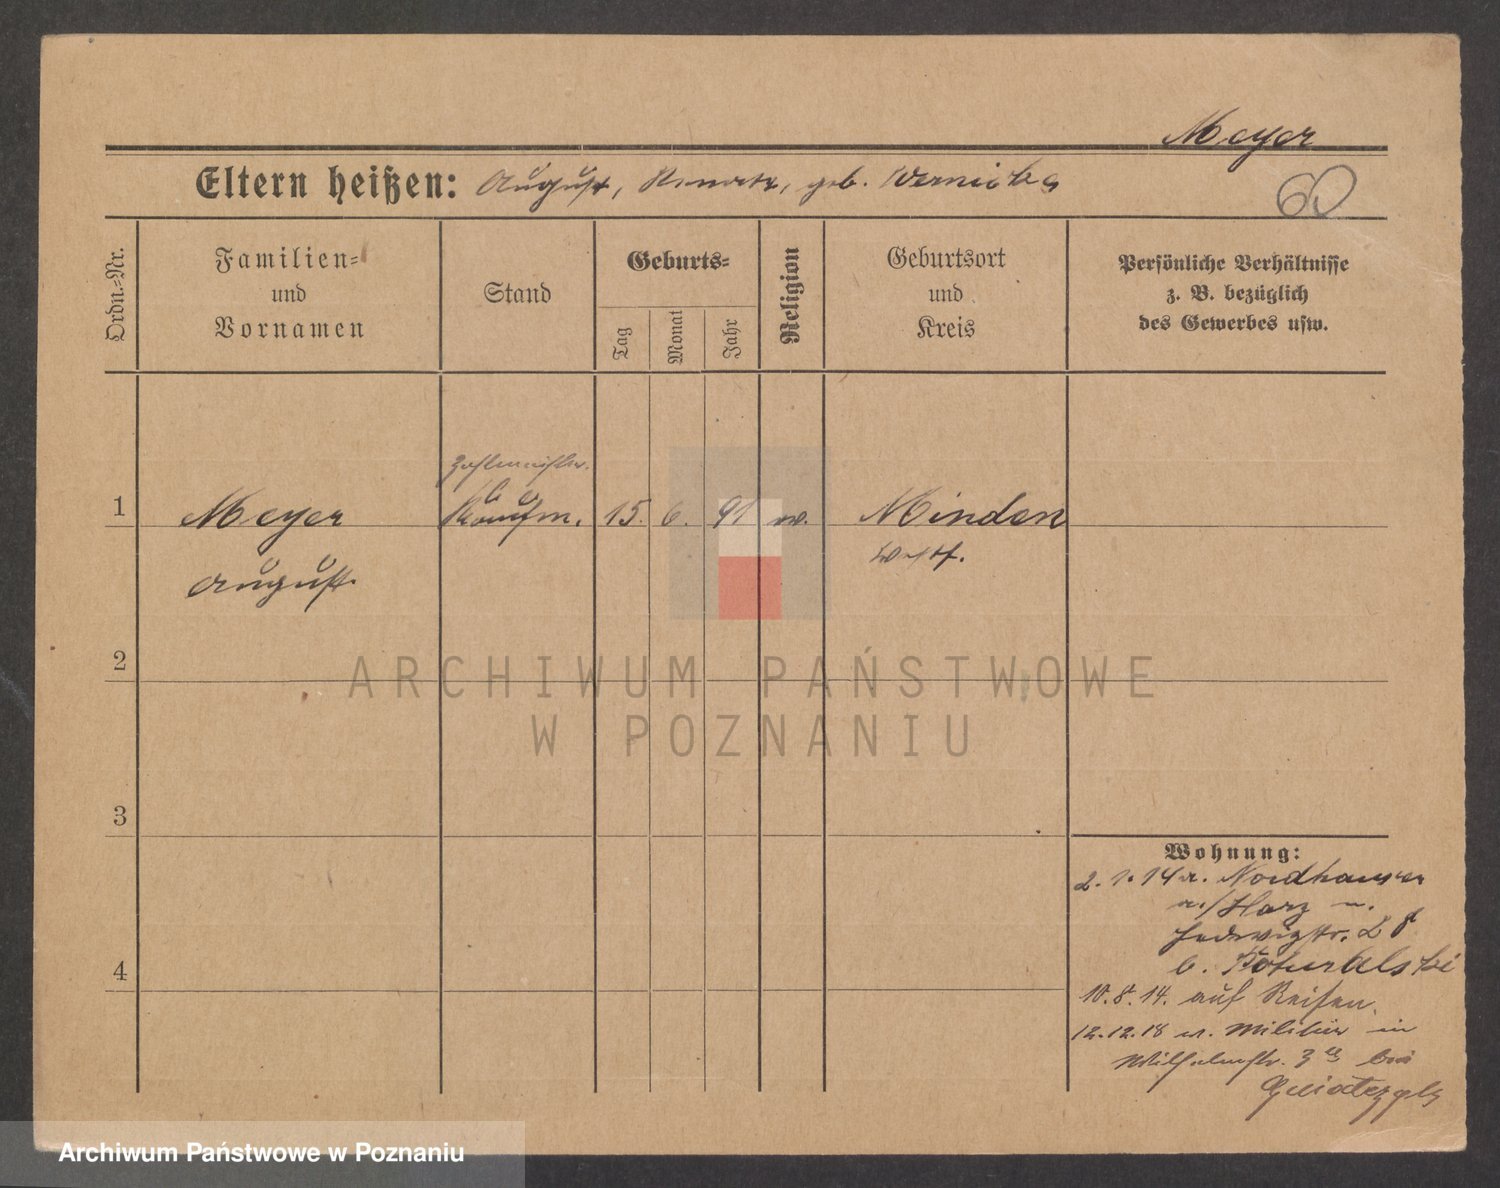 Meyer
Eltern heißen: August, Renate, geb. Wernicke
60
Ordn.-Nr.
Familien-
und
Vornamen
Stand
Geburts-
Tag
Monat
Jahr
Religion
Geburtsort
und
Kreis
Persönliche Verhältnisse
z. B. bezüglich
des Gewerbes usw.
Zahlmeister.
1 Meyer Kaufm. 15. 6. 91 Minden
August Westf.
2
ARCHIWUM PAŃSTWOWE
W POZNANIU
3
4
Wohnung:
2. 1. 14 v. Nordhausen
a./Harz n.
Hedwigstr.
b.
10. 8. 14. auf Reisen.
12. 12. 18 v. Militär in
Wilhelmstr. bei
Archiwum Państwowe w Poznaniu